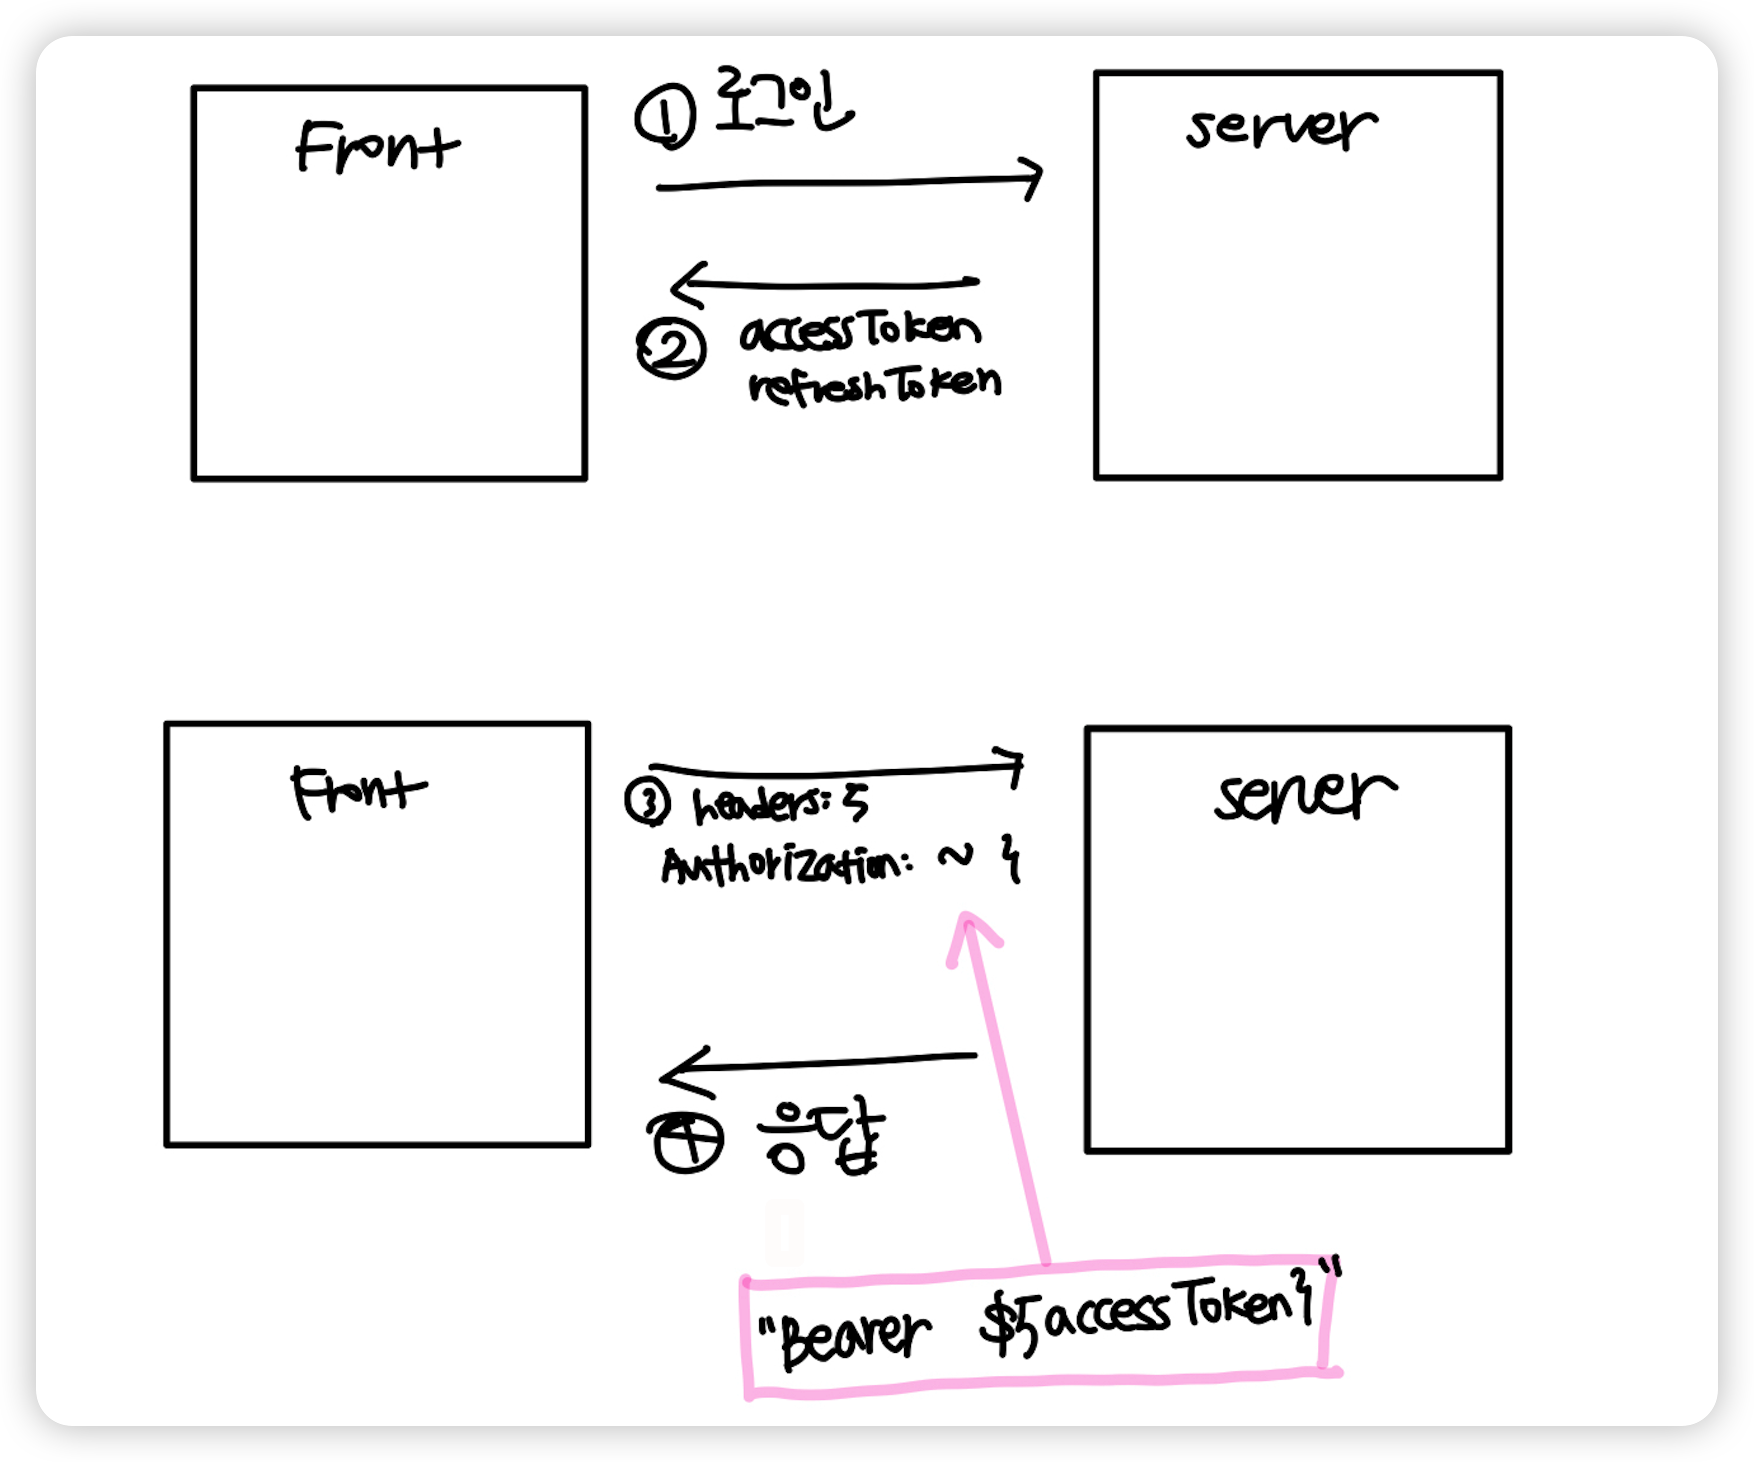 Front
① 로그인
server
② accessToken
refreshToken
Front
③ headers: {
Authorization: ~ }
server
④ 응답
"Bearer ${accessToken}"